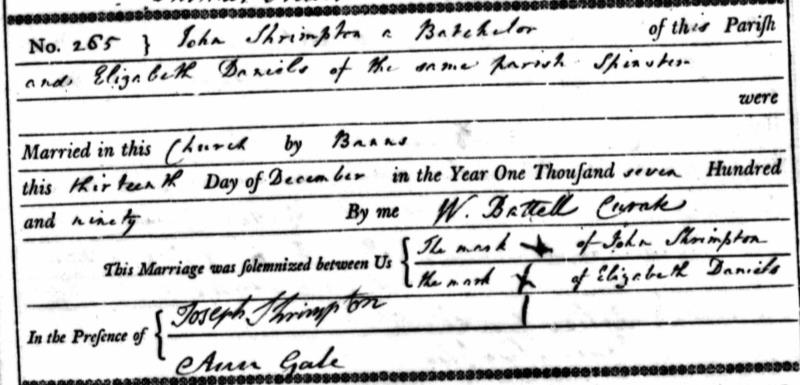 No. 265 } John Shrimpton a Batchelor of this Pariſh
and Elizabeth Daniels of the same parish Spinster
were
Married in this Church by Banns
this thirteenth Day of December in the Year One Thouſand seven Hundred
and ninety By me W. Battell Curate
This Marriage was ſolemnized between Us { The mark of John Shrimpton
the mark of Elizabeth Daniels
In the Preſence of { Joseph Shrimpton
Ann Gale